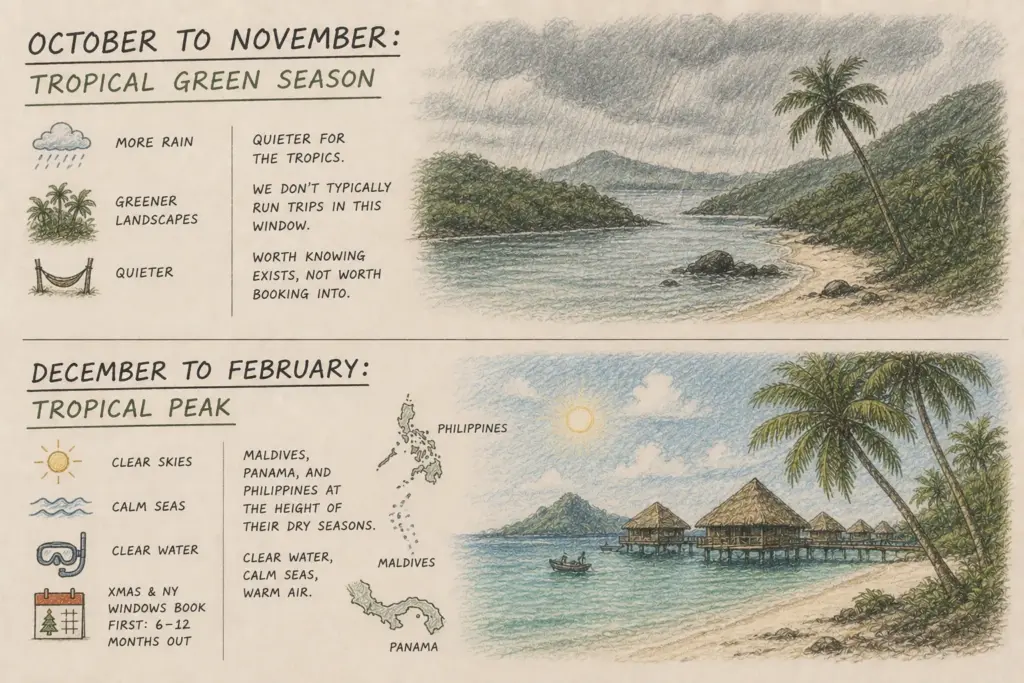 OCTOBER TO NOVEMBER:
TROPICAL GREEN SEASON
MORE RAIN
GREENER
LANDSCAPES
QUIETER
QUIETER FOR
THE TROPICS.
WE DON'T TYPICALLY
RUN TRIPS IN THIS
WINDOW.
WORTH KNOWING
EXISTS, NOT WORTH
BOOKING INTO.
DECEMBER TO FEBRUARY:
TROPICAL PEAK
CLEAR SKIES
CALM SEAS
CLEAR WATER
XMAS & NY
WINDOWS BOOK
FIRST: 6–12
MONTHS OUT
MALDIVES,
PANAMA, AND
PHILIPPINES AT
THE HEIGHT OF
THEIR DRY SEASONS.
CLEAR WATER,
CALM SEAS,
WARM AIR.
PHILIPPINES
MALDIVES
PANAMA